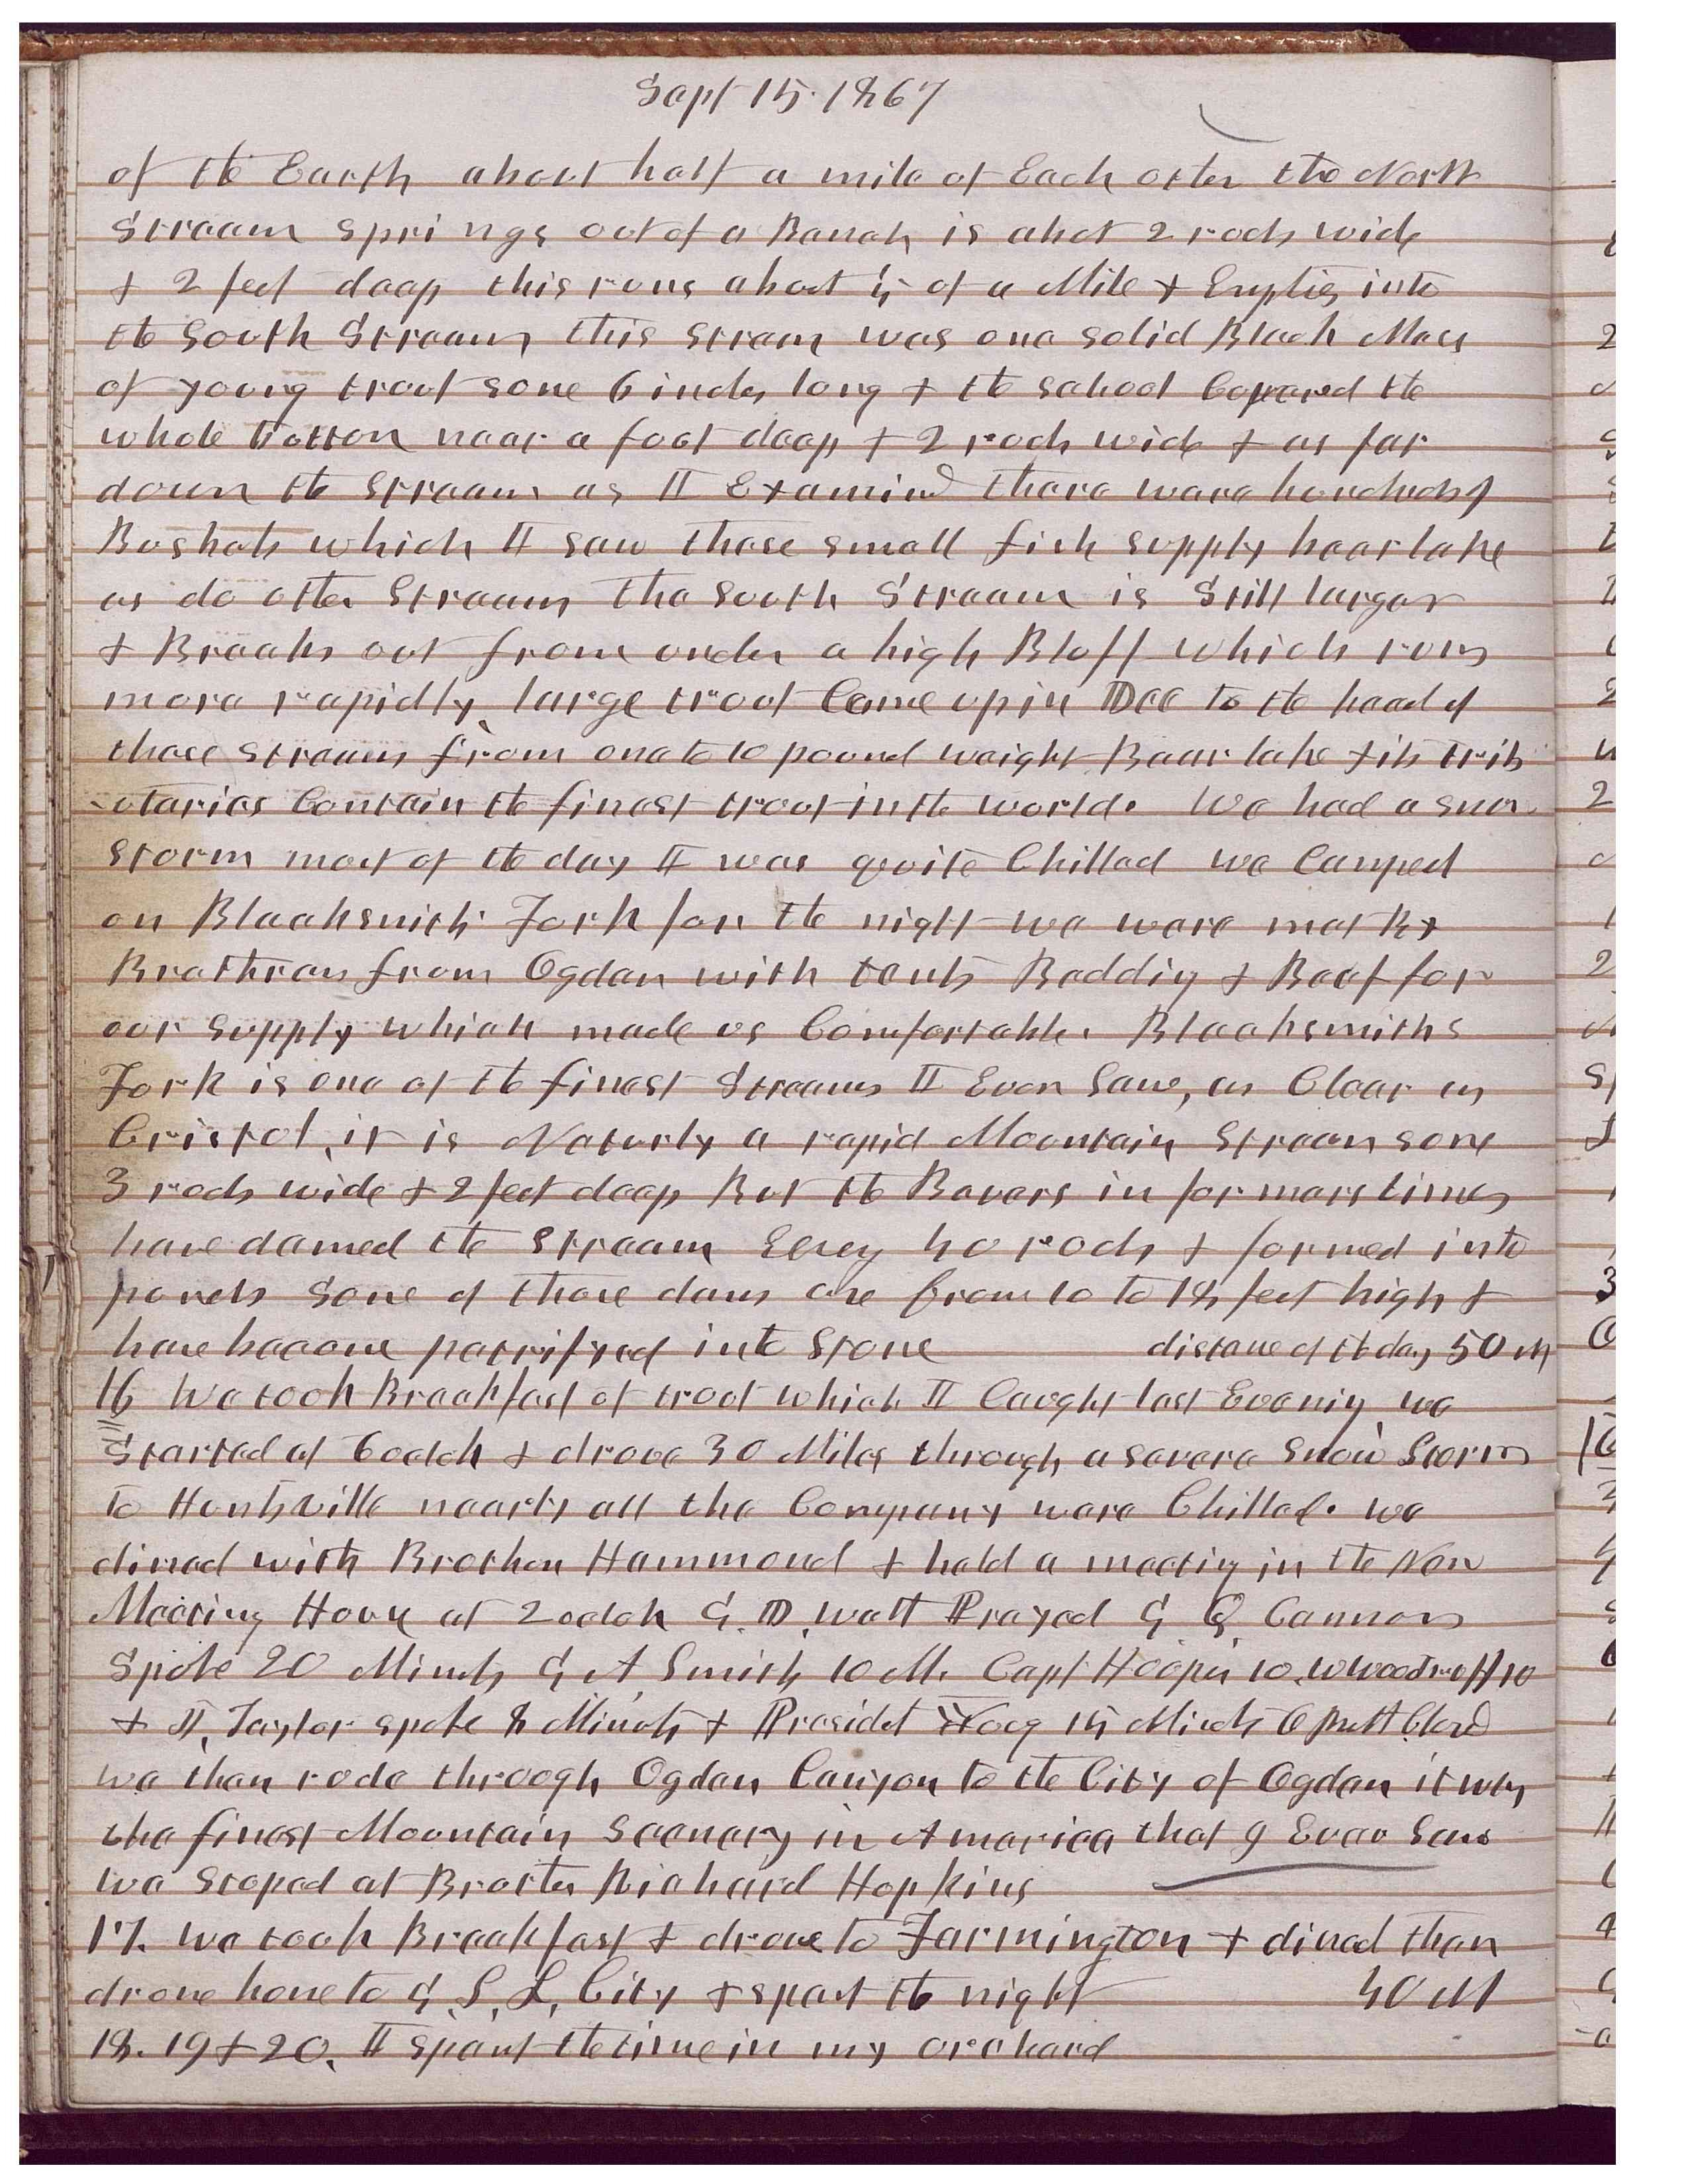 Sept 15. 1867
of the Earth about half a mile of Each other the North
Stream springs out of a Banch is abot 2 rods wide
& 2 feet deep this runs about ¼ of a Mile & Empties into
the South Stream this stream was one solid Black Mass
of young trout some 6 inches long & the school Covered the
whole bottom near a foot deep & 2 rods wide & as far
down the stream as I Examined there were hundreds of
Bushels which I saw these small fish supply bear lake
as do other Streams the South Stream is Still larger
& Breaks out from under a high Bluff which runs
more rapidly, large trout Come up in Dec to the head of
these streams from one to 10 pound weight Bear lake & its trib
-utaries Contain the finest trout in the world. We had a snow
storm most of the day I was quite Chilled we Camped
on Blacksmith Fork for the night we were met By
Brethren from Ogden with tents Beddig & Beef for
our supply which made us Comfortable. Blacksmiths
Fork is one of the finest Streams I Ever Saw, as Clear as
Cristol, it is Naturly a rapid Mountain Stream some
3 rods wide & 2 feet deep But the Bevers in formers times
have damed the Stream Evey 40 rods & formed into
ponds Some of those dams are from 10 to 18 feet high &
have become petrifyed into Stone distance of the day 50 m
16 We took Breakfast of trout which I Caught last Evenig, we
Started at 6 oclok & drove 30 Miles through a severe Snow Storm
to Huntsville nearly all the Company were Chilled. we
dined with Brother Hammond & held a meetig in the New
Meeting House at 2 oclok G. D. Watt Prayed G Q. Cannon
Spoke 20 Minuts G A Smith 10 M. Capt Hooper 10. W Woodruff 10
& J, Taylor spoke 8 Minuts & Presidet Young 15 Minuts O Pratt Closd
we then rode through Ogden Canyon to the City of Ogden it was
the finest Mountain Scenery in America that I Ever Saw
we stoped at Brother Richard Hopkins
17. we took Breakfast & drove to Farmington & dined then
drove home to G. S. L. City & spent the night 40 M
18. 19 & 20. I spent the time in my orchard